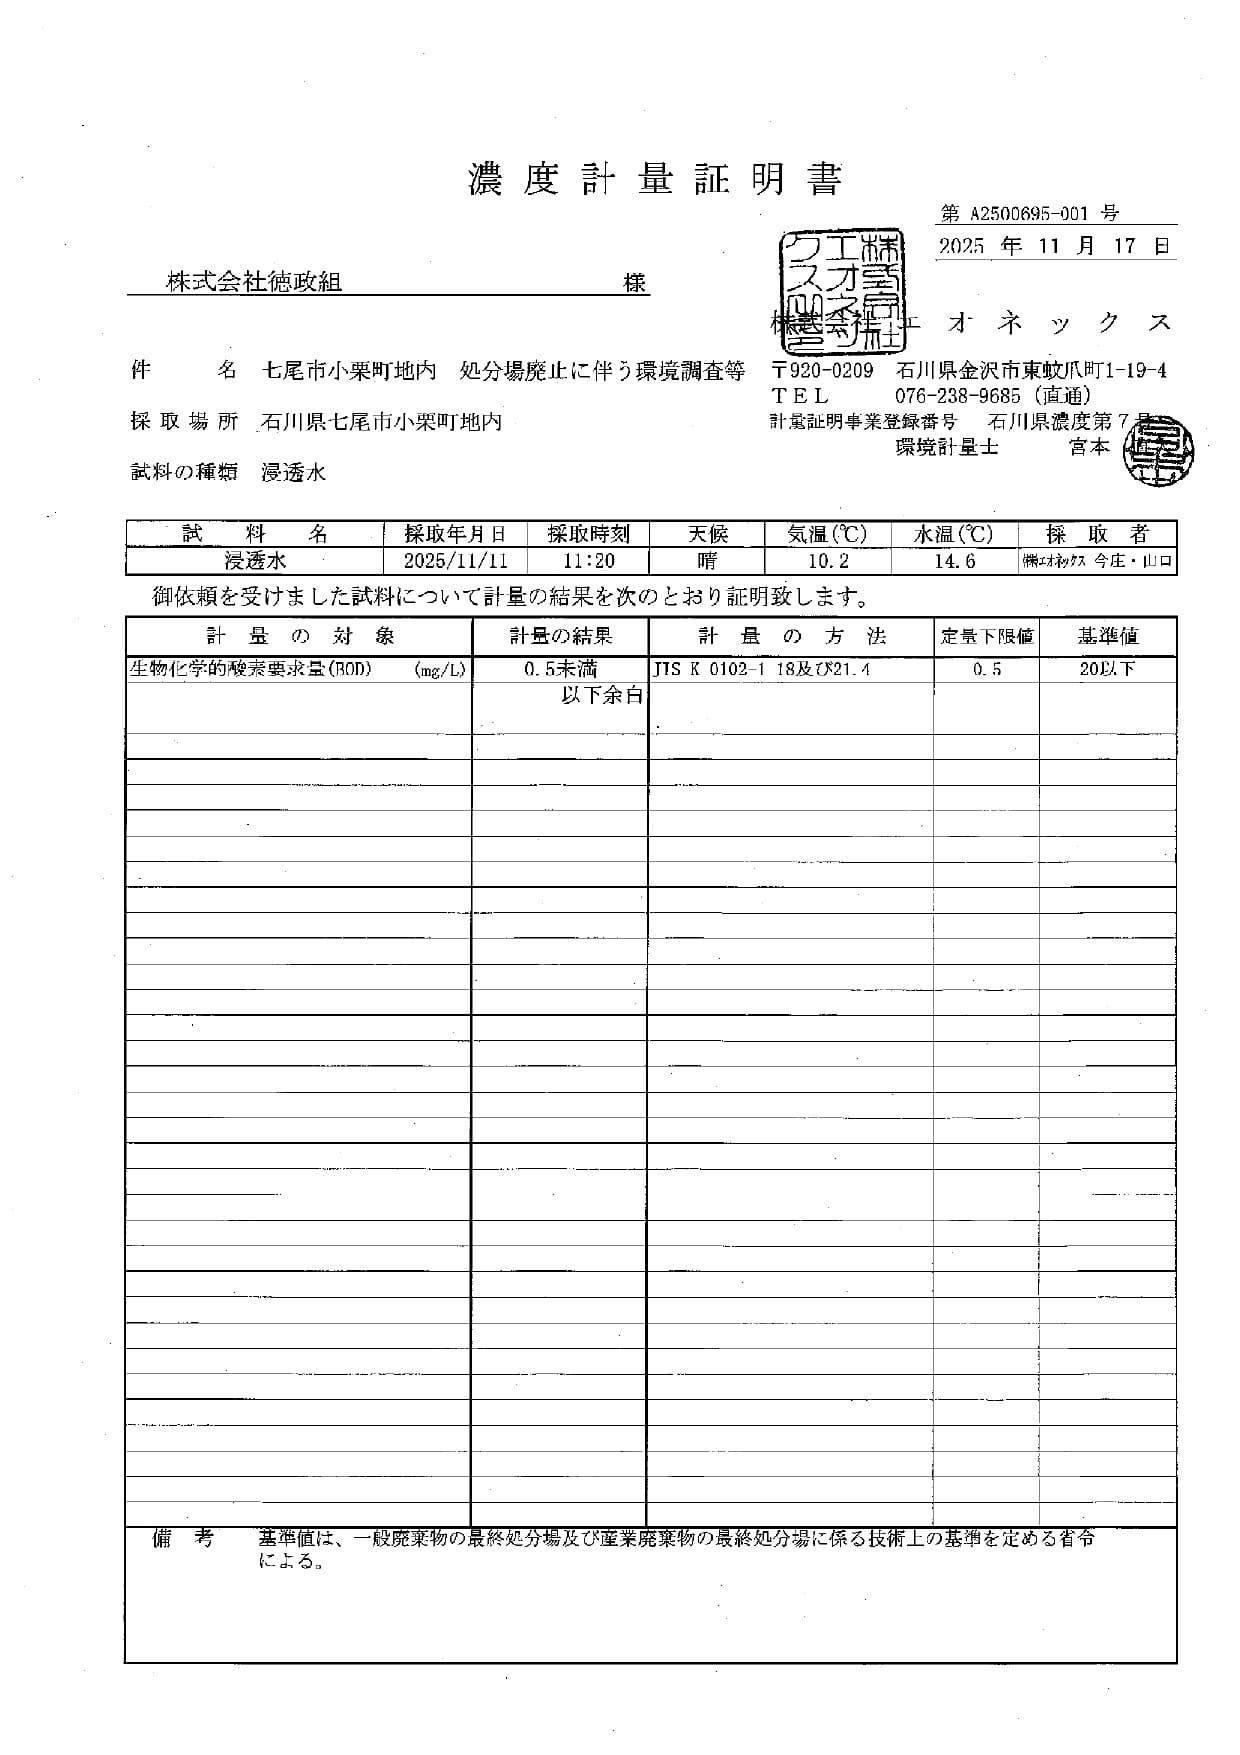 濃度計量証明書
第 A2500695-001 号
2025 年 11 月 17 日
株式会社徳政組 様
株式会社 エオネックス
件名 七尾市小栗町地内 処分場廃止に伴う環境調査等
〒920-0209 石川県金沢市東蚊爪町1-19-4
TEL 076-238-9685（直通）
採取場所 石川県七尾市小栗町地内
計量証明事業登録番号 石川県濃度第7号
環境計量士 宮本
試料の種類 浸透水
試料名 採取年月日 採取時刻 天候 気温(℃) 水温(℃) 採取者
浸透水 2025/11/11 11:20 晴 10.2 14.6 ㈱エオネックス 今庄・山口
御依頼を受けました試料について計量の結果を次のとおり証明致します。
計量の対象 計量の結果 計量の方法 定量下限値 基準値
生物化学的酸素要求量(BOD) (mg/L) 0.5未満 JIS K 0102-1 18及び21.4 0.5 20以下
以下余白
備考 基準値は、一般廃棄物の最終処分場及び産業廃棄物の最終処分場に係る技術上の基準を定める省令
による。